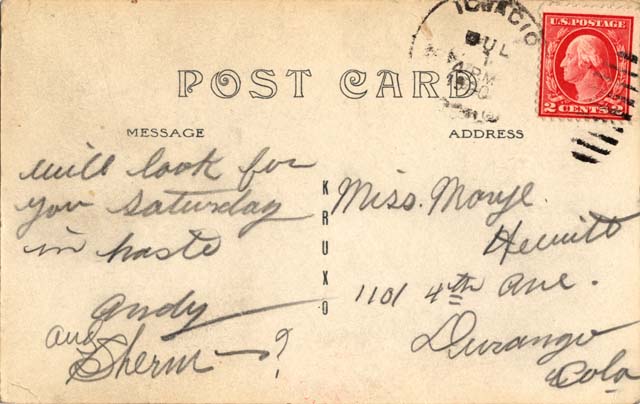 IGNACIO
JUL
1
A.M.
U.S. POSTAGE
2 CENTS 2
POST CARD
MESSAGE
ADDRESS
will look for
you Saturday
in haste
Andy
and
Sherm — ?
KRUXO
Miss. Marye.
Hewitt
1101 4th Ave.
Durango
Colo